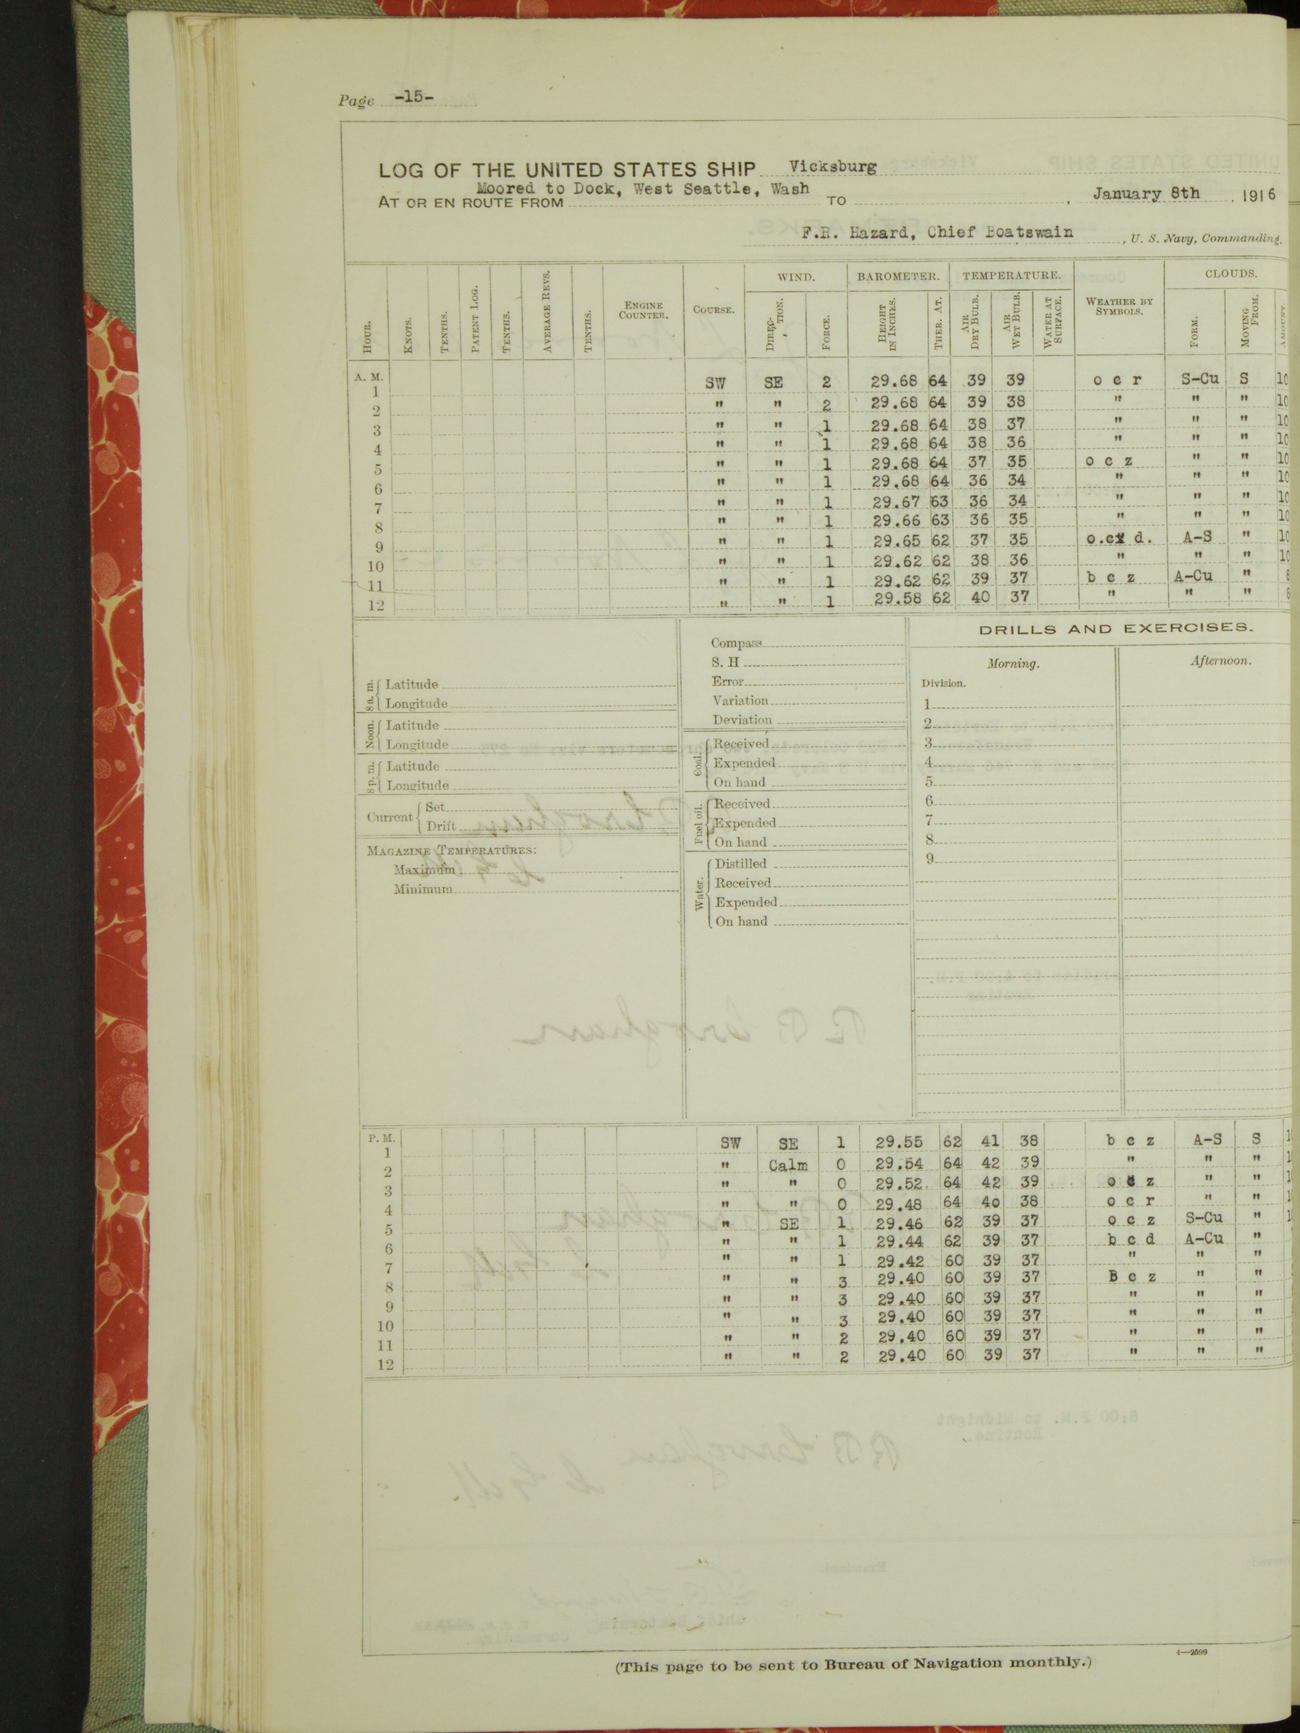 Page -15-
LOG OF THE UNITED STATES SHIP Vicksburg
AT OR EN ROUTE FROM Moored to Dock, West Seattle, Wash TO , January 8th , 1916
F.R. Hazard, Chief Boatswain , U. S. Navy, Commanding.
WIND. BAROMETER. TEMPERATURE. CLOUDS.
HOUR. KNOTS. TENTHS. PATENT LOG. TENTHS. AVERAGE REVS. TENTHS. ENGINE COUNTER. COURSE. DIREC-TION. FORCE. HEIGHT IN INCHES. THER. AT. AIR DRY BULB. AIR WET BULB. WATER AT SURFACE. WEATHER BY SYMBOLS. FORM. MOVING FROM. AMOUNT
A. M.
1 SW SE 2 29.68 64 39 39 o c r S-Cu S 10
2 " " 2 29.68 64 39 38 " " " 10
3 " " 1 29.68 64 38 37 " " " 10
4 " " 1 29.68 64 38 36 " " " 10
5 " " 1 29.68 64 37 35 o c z " " 10
6 " " 1 29.68 64 36 34 " " " 10
7 " " 1 29.67 63 36 34 " " " 10
8 " " 1 29.66 63 36 35 " " " 10
9 " " 1 29.65 62 37 35 o.cz d. A-S " 10
10 " " 1 29.62 62 38 36 " " " 10
11 " " 1 29.62 62 39 37 b c z A-Cu "
12 " " 1 29.58 62 40 37 " " "
DRILLS AND EXERCISES.
Morning. Afternoon.
Division.
1
2
3
4
5
6
7
8
9
8 a. m. Latitude
Longitude
Noon. Latitude
Longitude
8 p. m. Latitude
Longitude
Current Set
Drift
MAGAZINE TEMPERATURES:
Maximum
Minimum
Compass
S. H
Error
Variation
Deviation
Coal. Received
Expended
On hand
Fuel oil. Received
Expended
On hand
Water. Distilled
Received
Expended
On hand
P. M.
1 SW SE 1 29.55 62 41 38 b c z A-S S
2 " Calm 0 29.54 64 42 39 " " "
3 " " 0 29.52 64 42 39 o c z " "
4 " " 0 29.48 64 40 38 o c r " "
5 " SE 1 29.46 62 39 37 o c z S-Cu "
6 " " 1 29.44 62 39 37 b c d A-Cu "
7 " " 1 29.42 60 39 37 " " "
8 " " 3 29.40 60 39 37 B c z " "
9 " " 3 29.40 60 39 37 " " "
10 " " 3 29.40 60 39 37 " " "
11 " " 2 29.40 60 39 37 " " "
12 " " 2 29.40 60 39 37 " " "
(This page to be sent to Bureau of Navigation monthly.)
4—2599